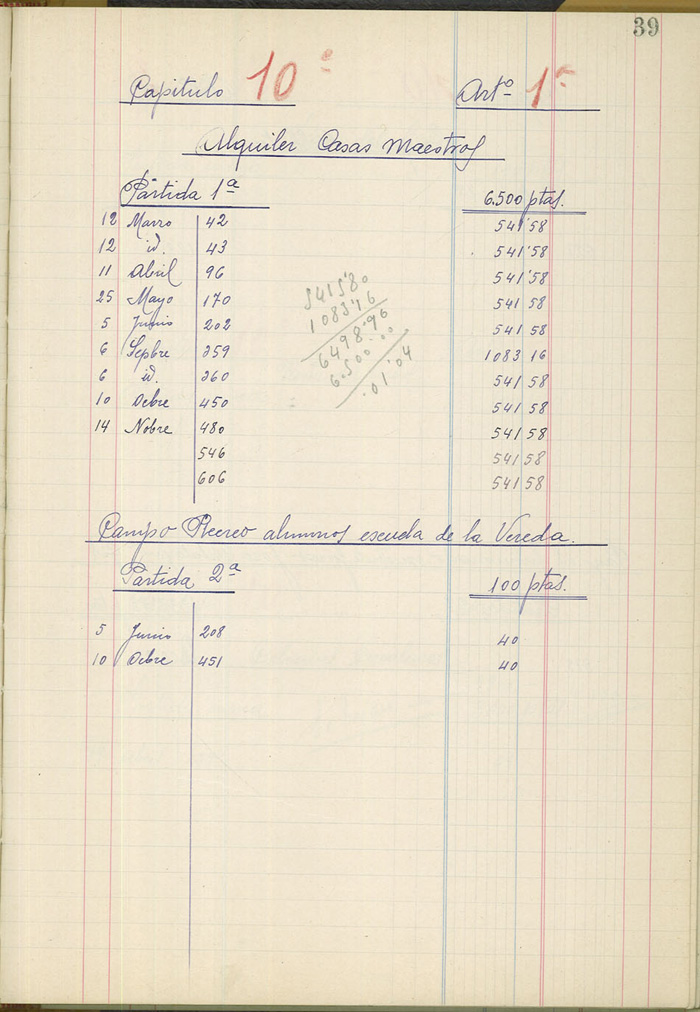 39
Capitulo 10º Artº 1º
Alquiler Casas Maestros
Partida 1ª 6.500 ptas.
12 Marzo 42 541'58
12 id. 43 541'58
11 Abril 96 541'58
25 Mayo 170 541 58
5 Junio 202 541 58
6 Sepbre 259 1083 16
6 id. 260 541 58
10 Ocbre 450 541 58
14 Nobre 480 541 58
546 541 58
606 541 58
5415'80
1083'16
6498'96
6.500.00
.01'04
Campo Recreo alumnos escuela de la Vereda.
Partida 2ª 100 ptas.
5 Junio 208 40
10 Ocbre 451 40